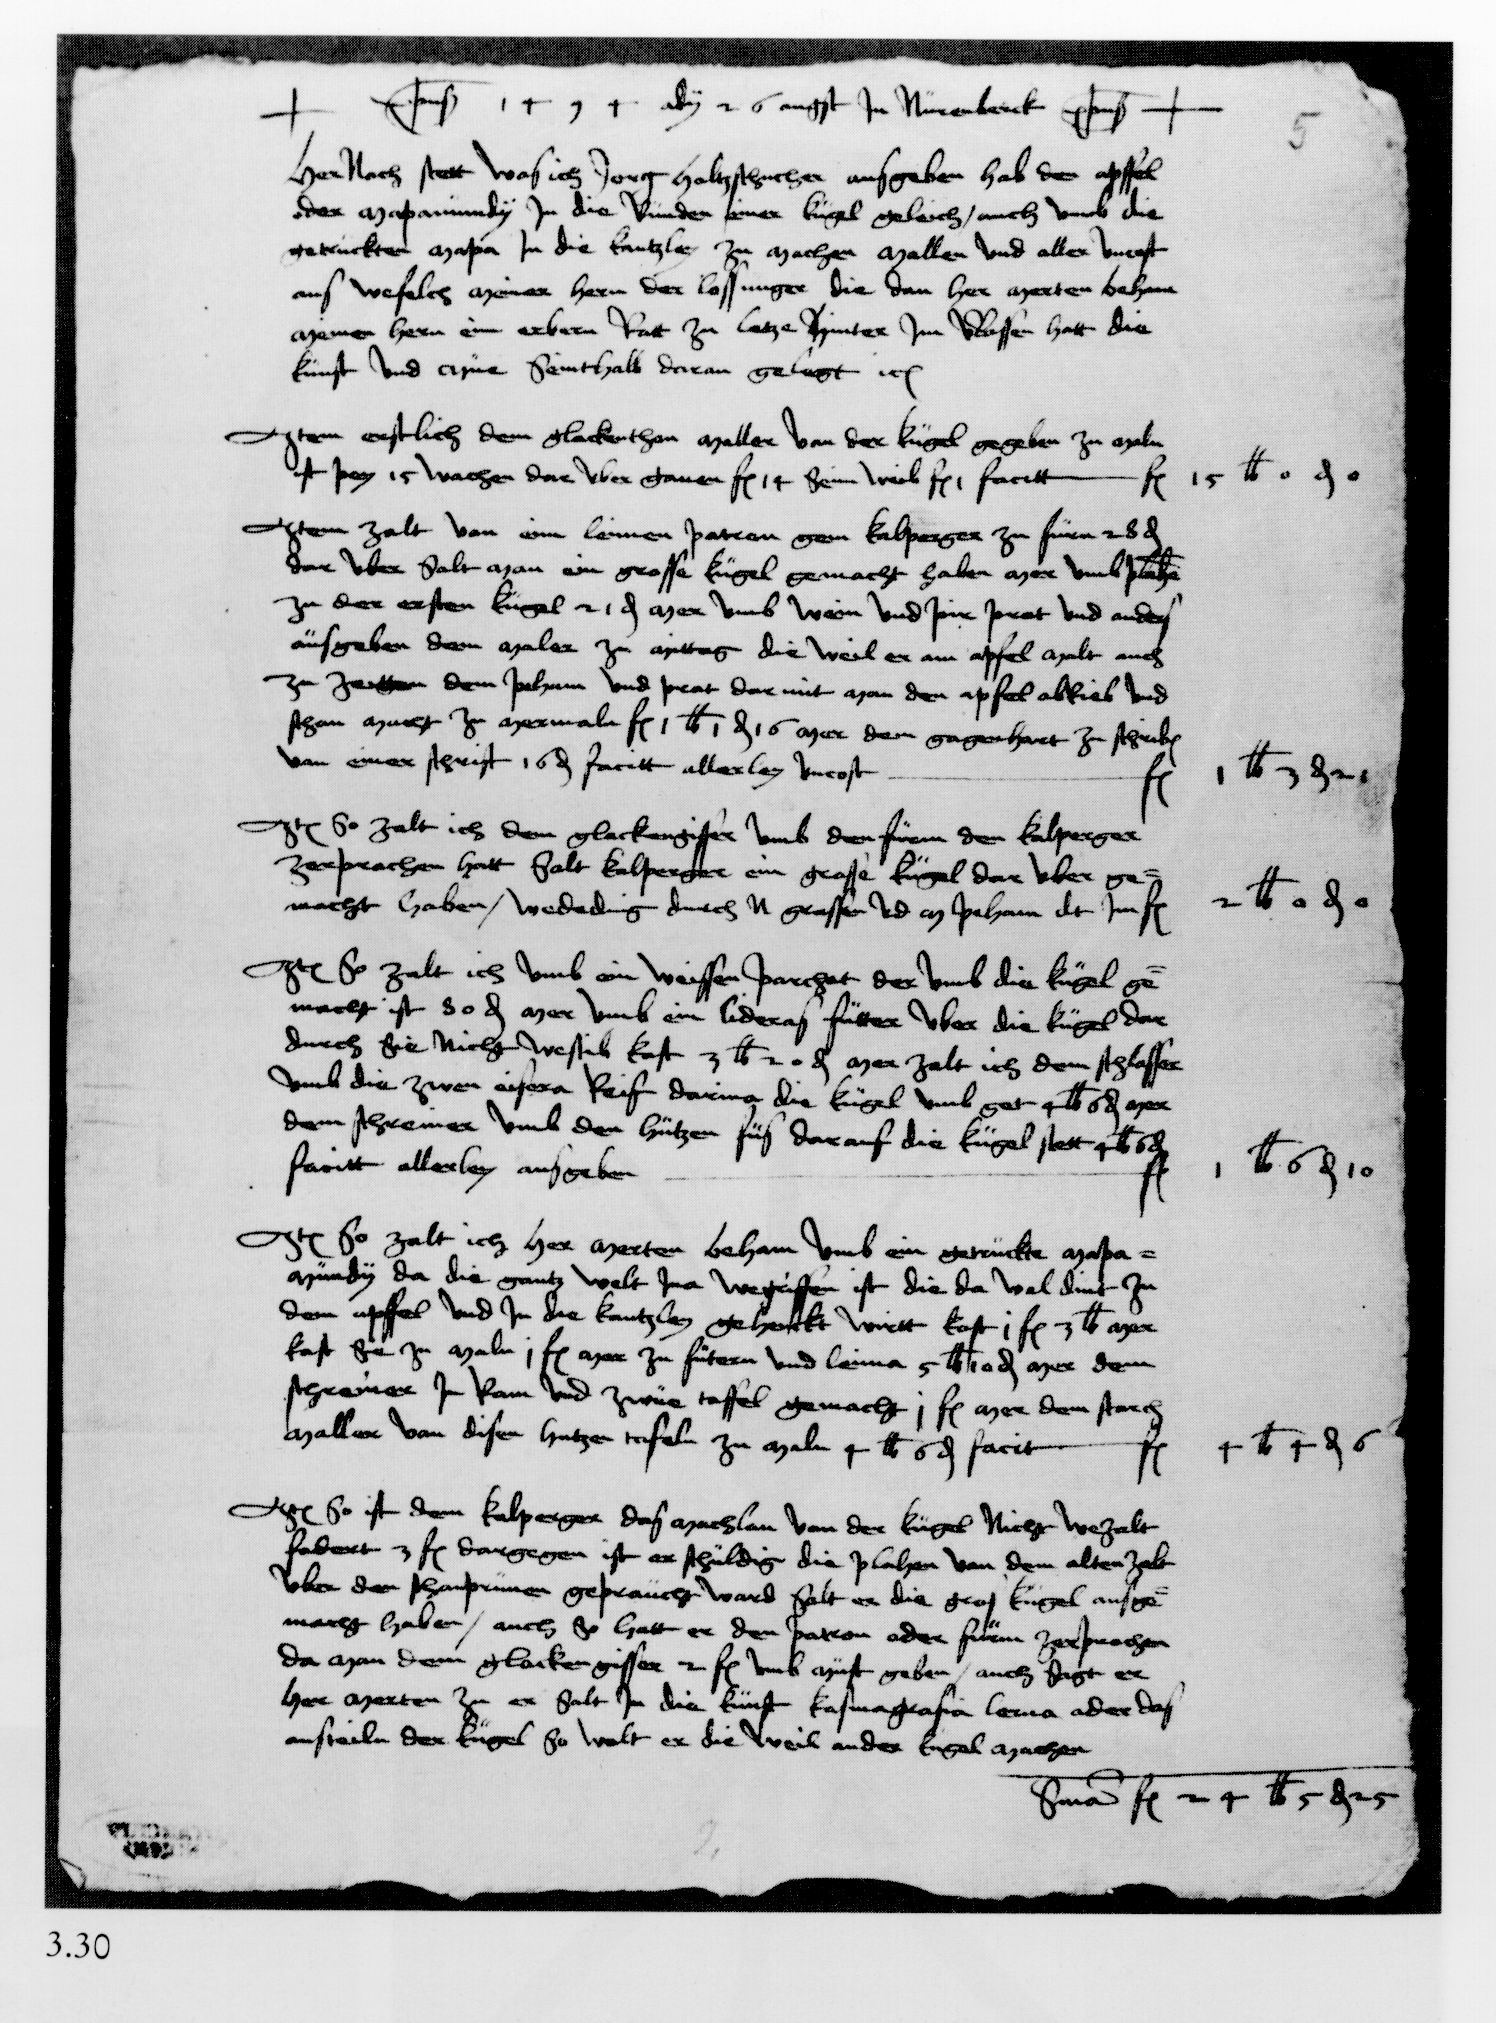 + Jhus 1494 ady 26 augst Jn Nürenberck Jhus +
5
Her Nach stett was ich Jorg Holtzschucher ausgeben hab den apffel
oder mapamundy Jn die Ründen einer kügel geleich / auch vmb die
getruckten mapa Jn die kantzley zu machen mallen vnd aller vncost
aus wefelch meiner hern der lossunger die dan her merten beham
meinen hern eim erbern Ratt zu letze hinter Jm Vlossen hatt die
künst vnd müe seinthalb daran gelegt etc
Jtem erstlich dem glackenthan maller van der kügel gegeben zu maln
ist pey 15 wachen dar vber gauen fl 14 sein weib fl 1 facitt fl 15 lb 0 d 0
Jtem zalt van eim leimen patron gem kalperger zu fürn 28 d
dar vber salt man ein grosse kügel gemacht haben mer vmb plahe
zu der ersten kügel 21 d mer vmb wein vnd pir prot vnd anders
ausgeben dem maler zu mittag die weil er am apfel malt auch
zu zeitten dem peham vnd prot dar mit man den apfel abrieb vnd
schan macht zu mermaln fl 1 lb 1 d 16 mer dem gagenhart zu schribn
van einer schrift 16 d facitt allerley vncost fl 1 lb 3 d 21
Jtem So zalt ich dem glackengisser vmb den fürm den kalperger
zerprachen hatt salt kalperger ein grosse kügel dar vber ge=
macht haben / wededing durch N grassen vd m peham dt Jm fl 2 lb 0 d 0
Jtem So zalt ich vmb ein weissen parchat der vmb die kügel ge=
macht ist 80 d mer vmb ein lideras fütter vber die kügel dar
durch sie nicht westib kost 3 lb 20 d mer zalt ich dem schlasser
vmb die zwen eisera Reif darina die kügel vmb get 4 lb 6 d mer
dem schreiner vmb den hützen füs darauf die kügel stett 4 lb 6 d
facitt allerley ausgeben fl 1 lb 6 d 10
Jtem So zalt ich her merten beham vmb ein getruckte mapa=
mündy da die gantz welt Jna wegriffen ist die da wol dint zu
dem apffel vnd Jn die kantzley gehenckt wirtt kost j fl 3 lb mer
kost sie zu maln j fl mer zu fütern vnd leima 5 lb 10 d mer dem
schreiner Jn Ram vnd zwüe taffel gemacht j fl mer dem starch
maller van disen hutzen tafeln zu maln 4 lb 6 d facit fl 4 lb 4 d 6
Jtem So ist dem kalperger das machlan van der kügel Nicht wezalt
fadert 3 fl dargegen ist er schüldig die plahen van dem alten zelt
vber den schanprünen gepraücht ward salt er die gros kügel ausge=
macht haben / auch so hatt er den patron oder fürm zerprochen
da man dem glackengisser 2 fl vmb müst geben / auch sagt er
her merten zu er salt Jn die künst kasmagrafia lerna ader das
austeiln der kügel so welt er die weil ander kügel machen
Suma fl 24 lb 5 d 25
3.30